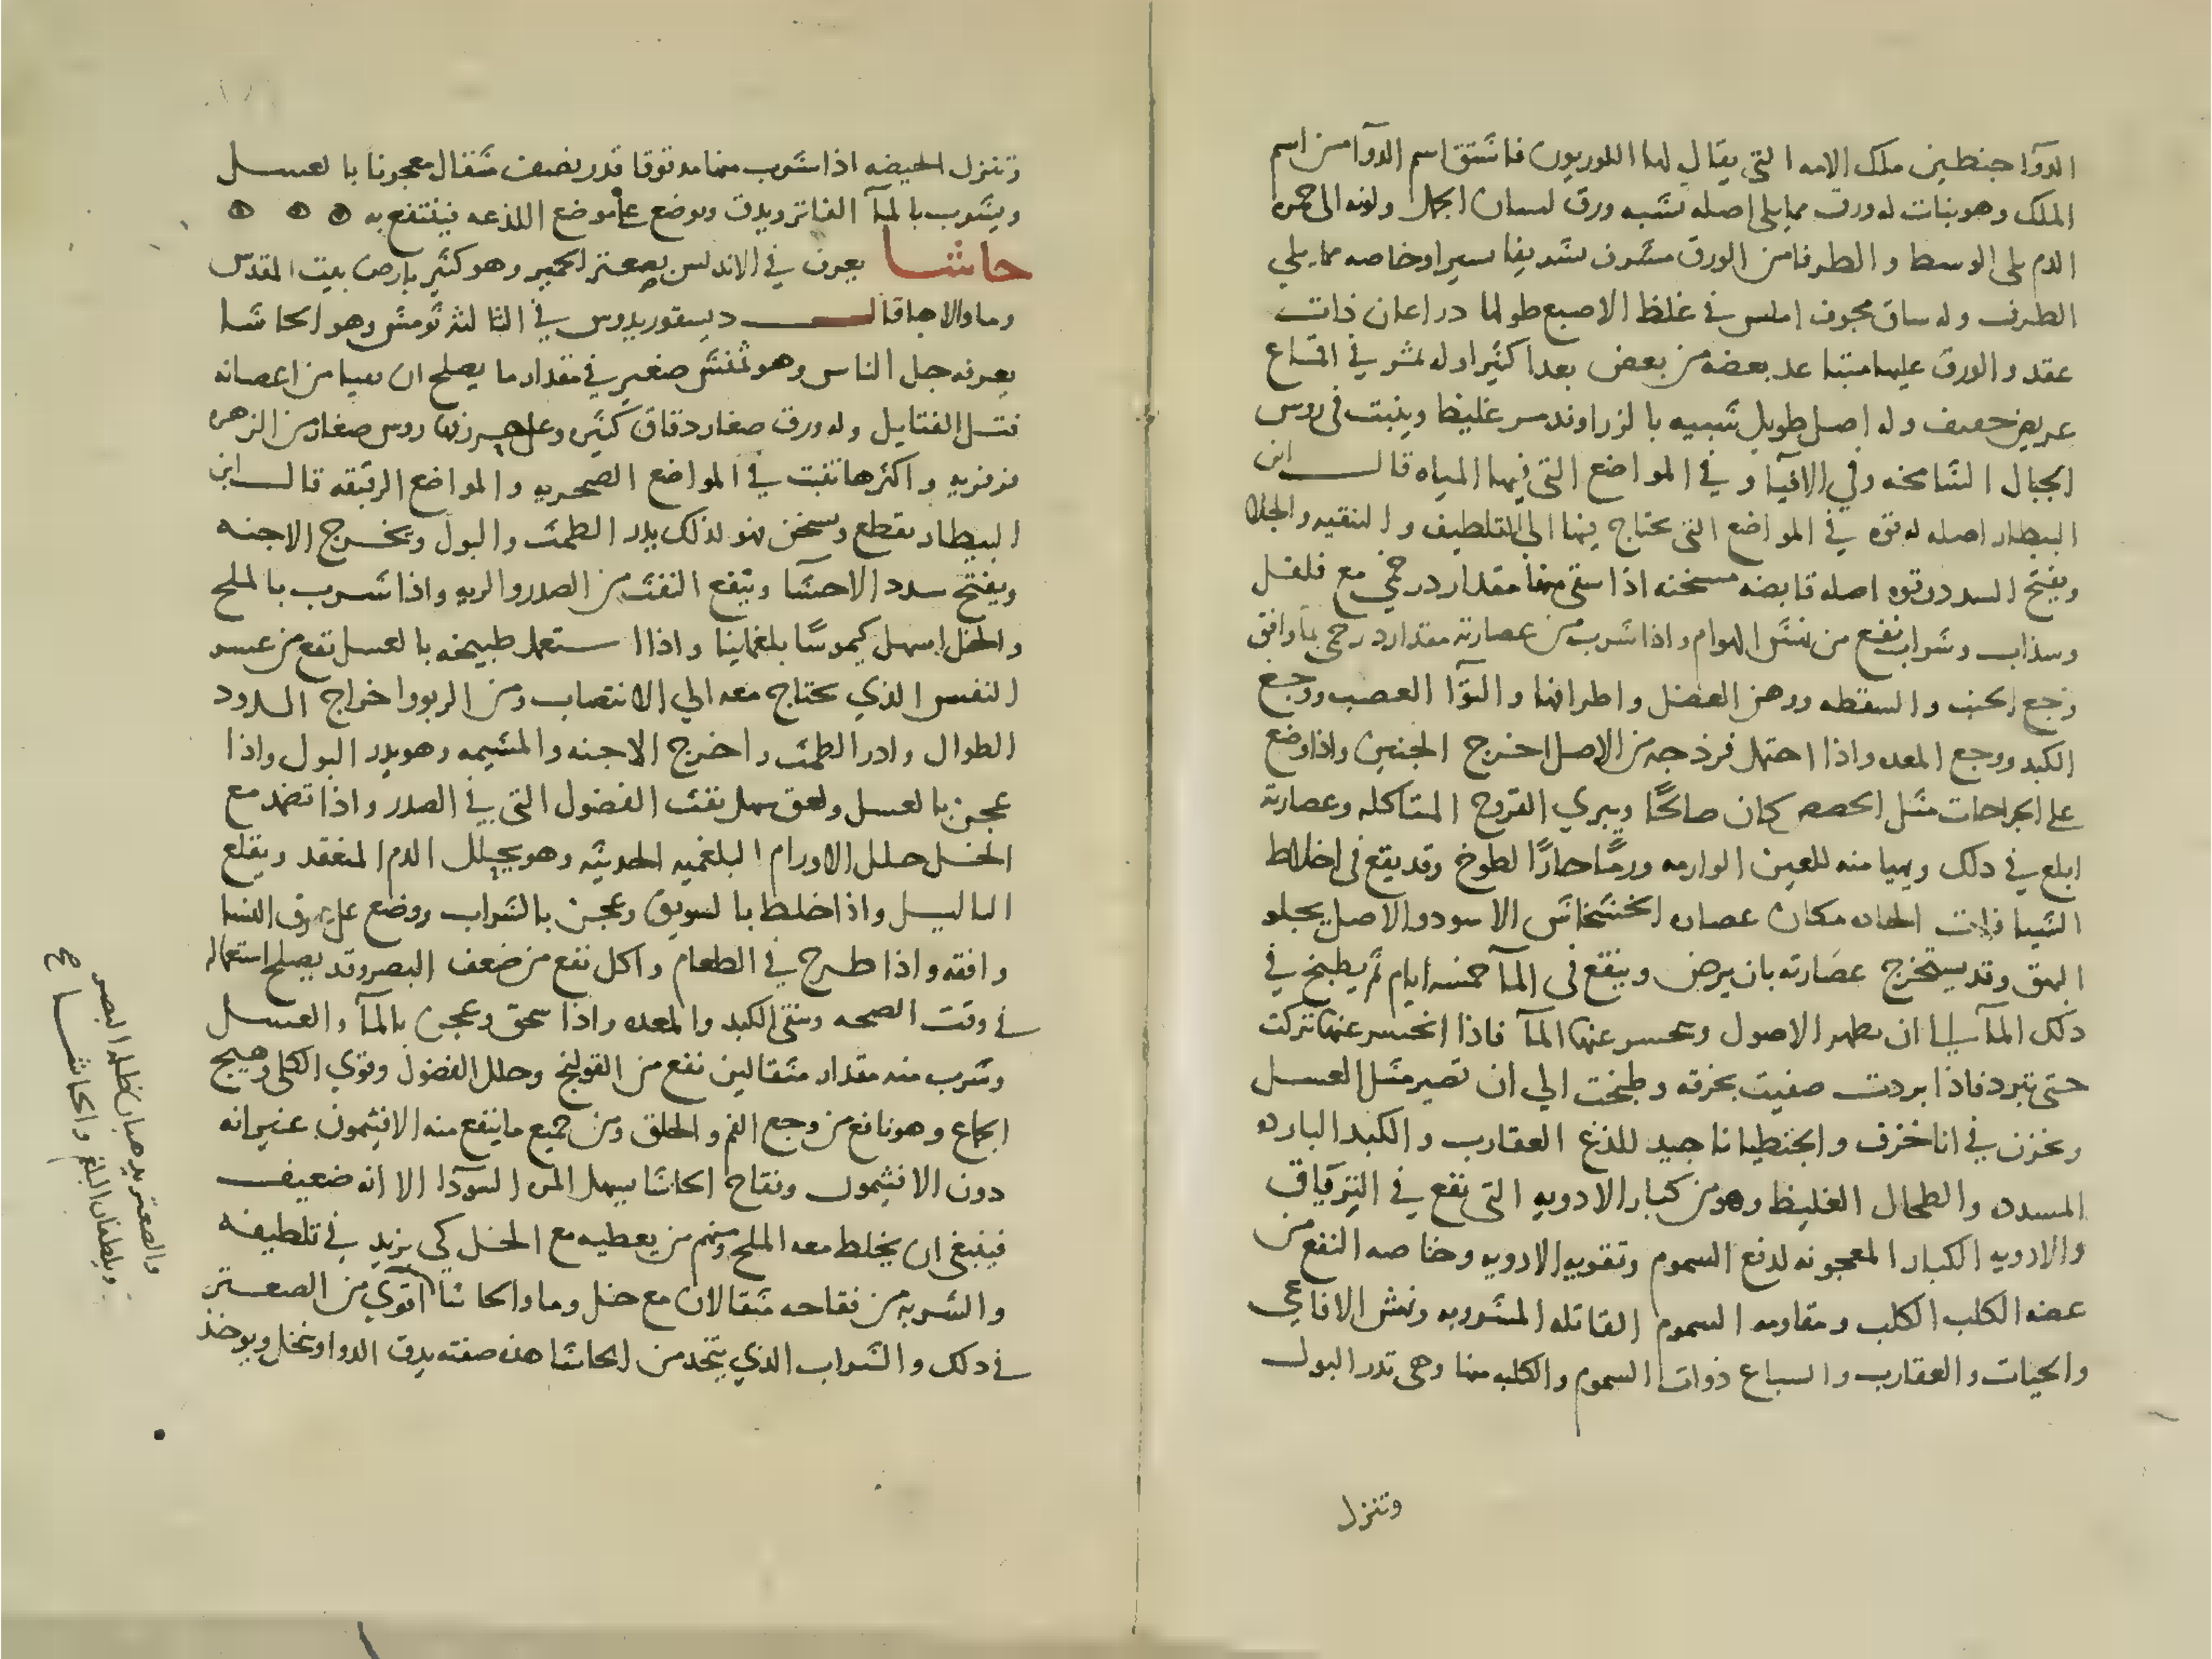 الدوآ جنطين ملك الامه التي يقال لها اللوريون فاشتق اسم الدوآ من اسم
الملك وهو نبات له ورق مما يلي اصله يشبه ورق لسان الحمل ولونه الى حمرة
الدم يلي الوسط والطرفا من الورق مشرف تشريفا يسيرا وخاصه مما يلي
الطرف وله ساق مجوف املس في غلظ الاصبع طولها دراعان ذات
عقد والورق عليها متباعد بعضه من بعض بعدا كثيرا وله ثمر في اقماع
عريض خفيف وله اصل طويل شبيه بالزراوند مر غليظ وينبت في روس
الجبال الشامخه وفي الافيآ وفي المواضع التي فيها المياه قال ابن
البيطار اصله له قوه في المواضع التي يحتاج فيها الى التلطيف والتنقيه والجلا
ويفتح السدد وقوه اصله قابضه مسخنه اذا سقي منها مقدار درخمي مع فلفل
وسذاب وشراب نفع من نهش الهوام واذا شرب من عصارته مقدار درخمي بمآ وافق
وجع الجنب والسقطه ووهن العضل واطرافها والتوآ العصب ووجع
الكبد ووجع المعده واذا احتمل فرزجه من الاصل اخرج الجنين واذا وضع
على الجراحات مثل الحضض كان صالحًا ويبري القروح المتاكله وعصارته
ابلغ في ذلك ويهيا منه للعين الوارمه ورمًا حارًا لطوخ وقد يقع في اخلاط
الشيافات الحاده مكان عصاره الخشخاش الاسود والاصل يجلو
البهق وقد يستخرج عصارته بان يرض وينقع في المآ خمسه ايام ثم يطبخ في
ذلك المآ الى ان يظهر الاصول وينحسر عنها المآ فاذا انحسر عنها تركت
حتى تبرد فاذا بردت صفيت بخرقه وطبخت الي ان تصير مثل العسل
وتخزن في انا خزف والجنطيانا جيد للذغ العقارب والكبد البارده
المسدده والطحال الغليظ وهو من كبار الادويه التي تقع في الترياق
والادويه الكبار المعجونه لدفع السموم وتقويه الادويه وخاصه النفع من
عضه الكلب الكلب ومقاومه السموم القاتله المشروبه ونهش الافاعي
والحيات والعقارب والسباع ذوات السموم والكلبه منها وهي تدر البول
وتنزل
وتنزل الحيضه اذا شرب منها مدقوقا قدر نصف مثقال معجونا بالعسل
ويشرب بالمآ الفاتر ويدق ويوضع على موضع اللذعه فينتفع به
حاشا يعرف في الاندلس بصعتر الحمير وهو كثير بارض بيت المقدس
وما والاها قال ديسقوريدوس في الثالثه ثومش وهو الحاشا
يعرفه جل الناس وهو تمنش صغير في مقدار ما يصلح ان يهيا من اغصانه
فتل الفتايل وله ورق صغار دقاق كثير وعلى روس صغار من الزهر
فرفريه واكثرها تنبت في المواضع الصخريه والمواضع الرقيقه قال ابن
البيطار يقطع ويسخن فهو لذلك يدر الطمث والبول ويخرج الاجنه
ويفتح سدد الاحشآ وينفع النفث من الصدر والريه واذا شرب بالملح
والخل اسهل كيموسًا بلغمانيا واذا استعمل طبيخه بالعسل نفع من عسر
النفس الذي يحتاج معه الي الانتصاب ومن الربو واخراج الدود
الطوال وادر الطمث واخرج الاجنه والمشيمه وهو يدر البول واذا
عجن بالعسل ولعق سهل نفث الفضول التي في الصدر واذا تضمد مع
الخل حلل الاورام البلغميه الحديثه وهو يحلل الدم المنعقد ويقلع
الثاليل واذا خلط بالسويق وعجن بالشراب ووضع على عرق النسا
وافقه واذا طرح في الطعام واكل نفع من ضعف البصر وقد يصلح استعماله
في وقت الصحه وينقي الكبد والمعده واذا سحق وعجن بالمآ والعسل
وشرب منه مقدار مثقالين نفع من القولنج وحلل الفضول وقوي الكلى وهيج
الجماع وهو نافع من وجع الفم والحلق ومن جميع ما ينفع منه الافيثمون غير انه
دون الافثيمون وفقاح الحاشا يسهل المره السودآ الا انه ضعيف
فينبغي ان يخلط معه الملح ومنهم من يعطيه مع الخل كي يزيد في تلطيفه
والشربه من فقاحه مثقالان مع خل وما والحاشا اقوي من الصعتر
في ذلك والشراب الذي يتخذ من الحاشا هذه صفته يدق الدوا وينخل ويوخذ
والصعتر يذهبان ظلمة البصر
ويلطفان البلغم والحاشا